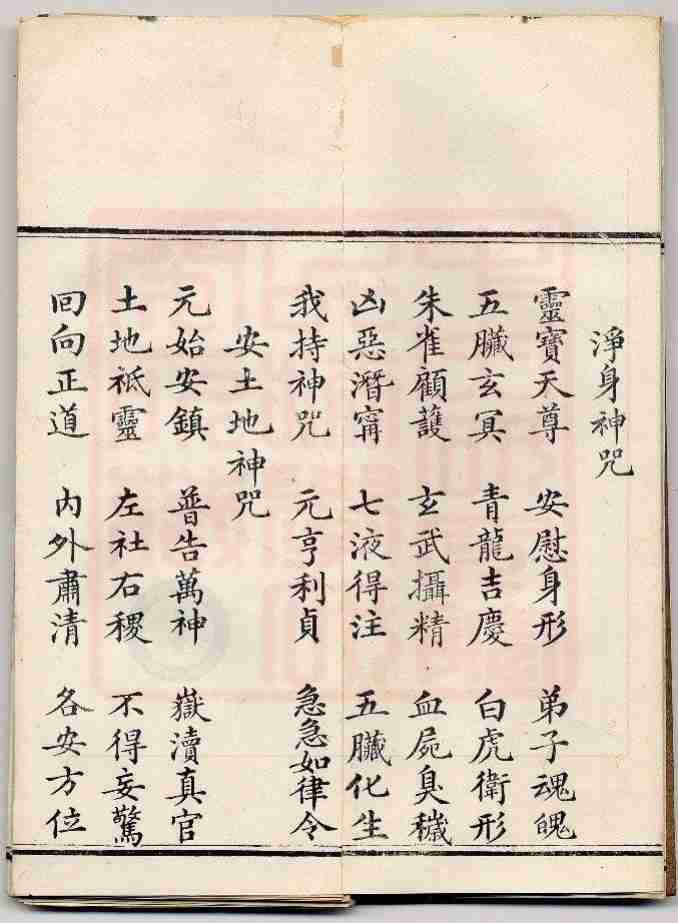 淨身神咒
靈寶天尊 安慰身形 弟子魂魄
五臟玄冥 青龍吉慶 白虎衛形
朱雀顧護 玄武攝精 血屍臭穢
凶惡潛甯 七液得注 五臟化生
我持神咒 元亨利貞 急急如律令
安土地神咒
元始安鎮 普告萬神 嶽瀆真官
土地祇靈 左社右稷 不得妄驚
回向正道 內外肅清 各安方位